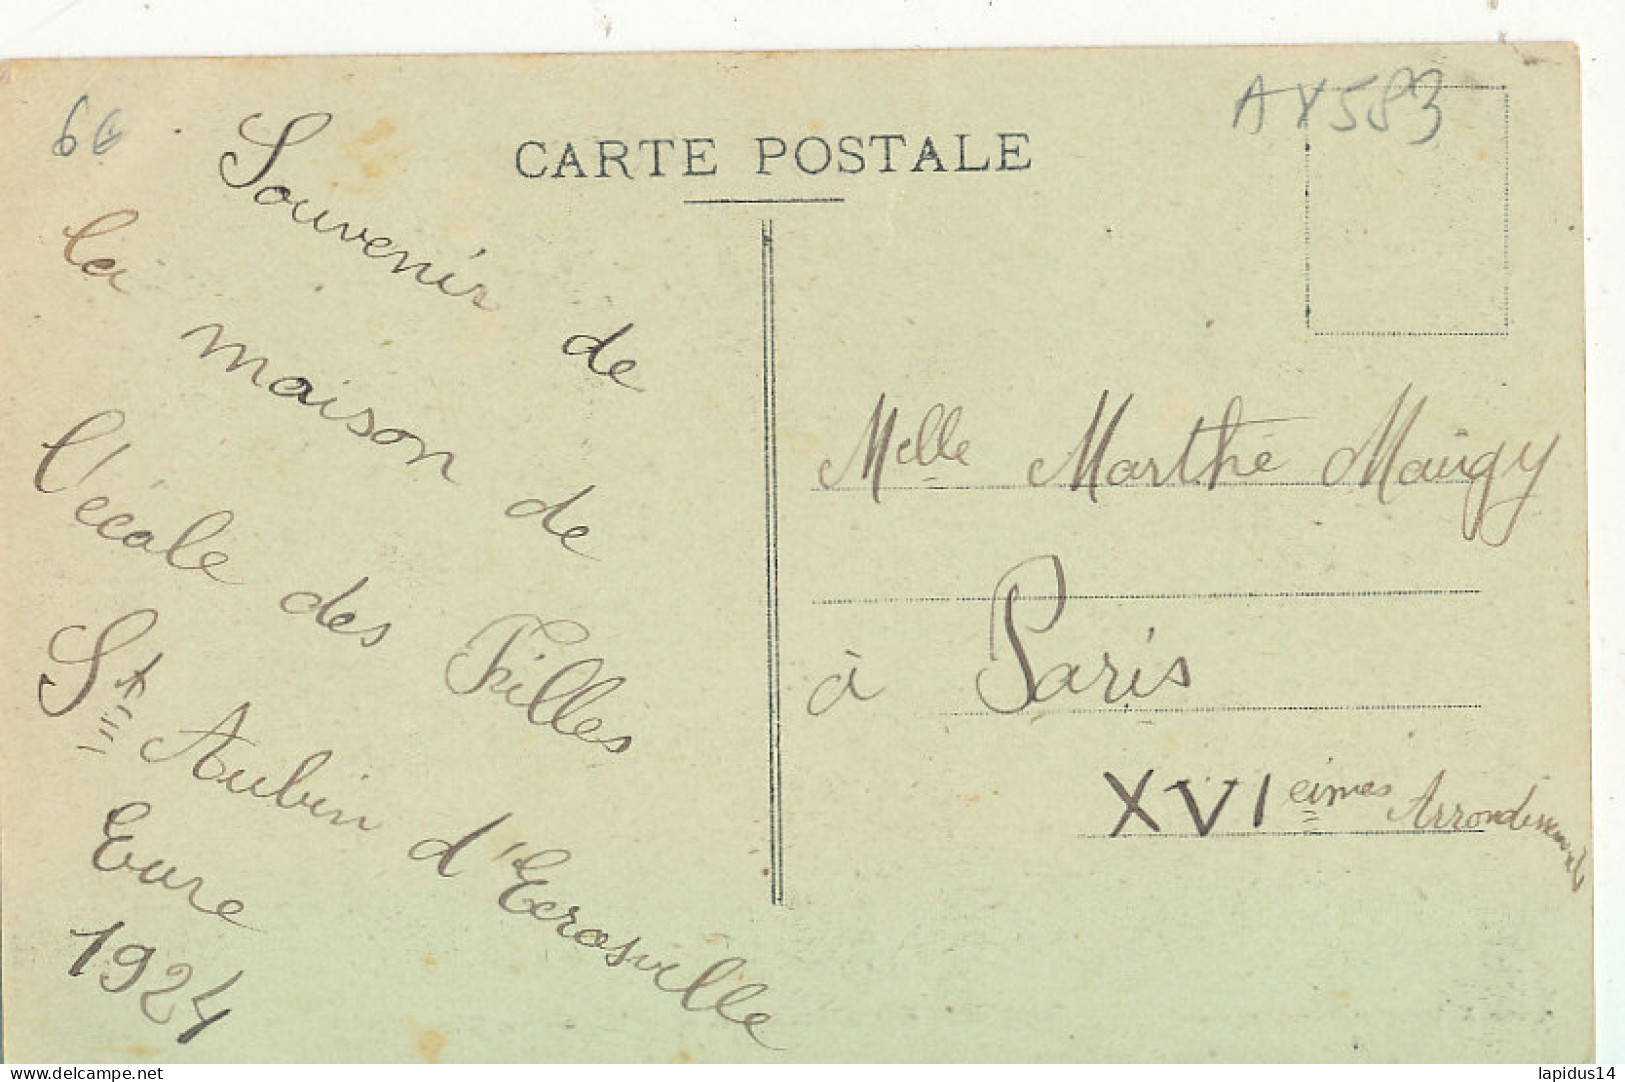 6€
AY583
CARTE POSTALE
Souvenir de
la maison de
l'école des Filles
St Aubin d'Ecrosville
Eure
1924
Melle Marthe Maugy
à Paris
XVI eimes Arrondissement
www.delcampe.net
lapidus14